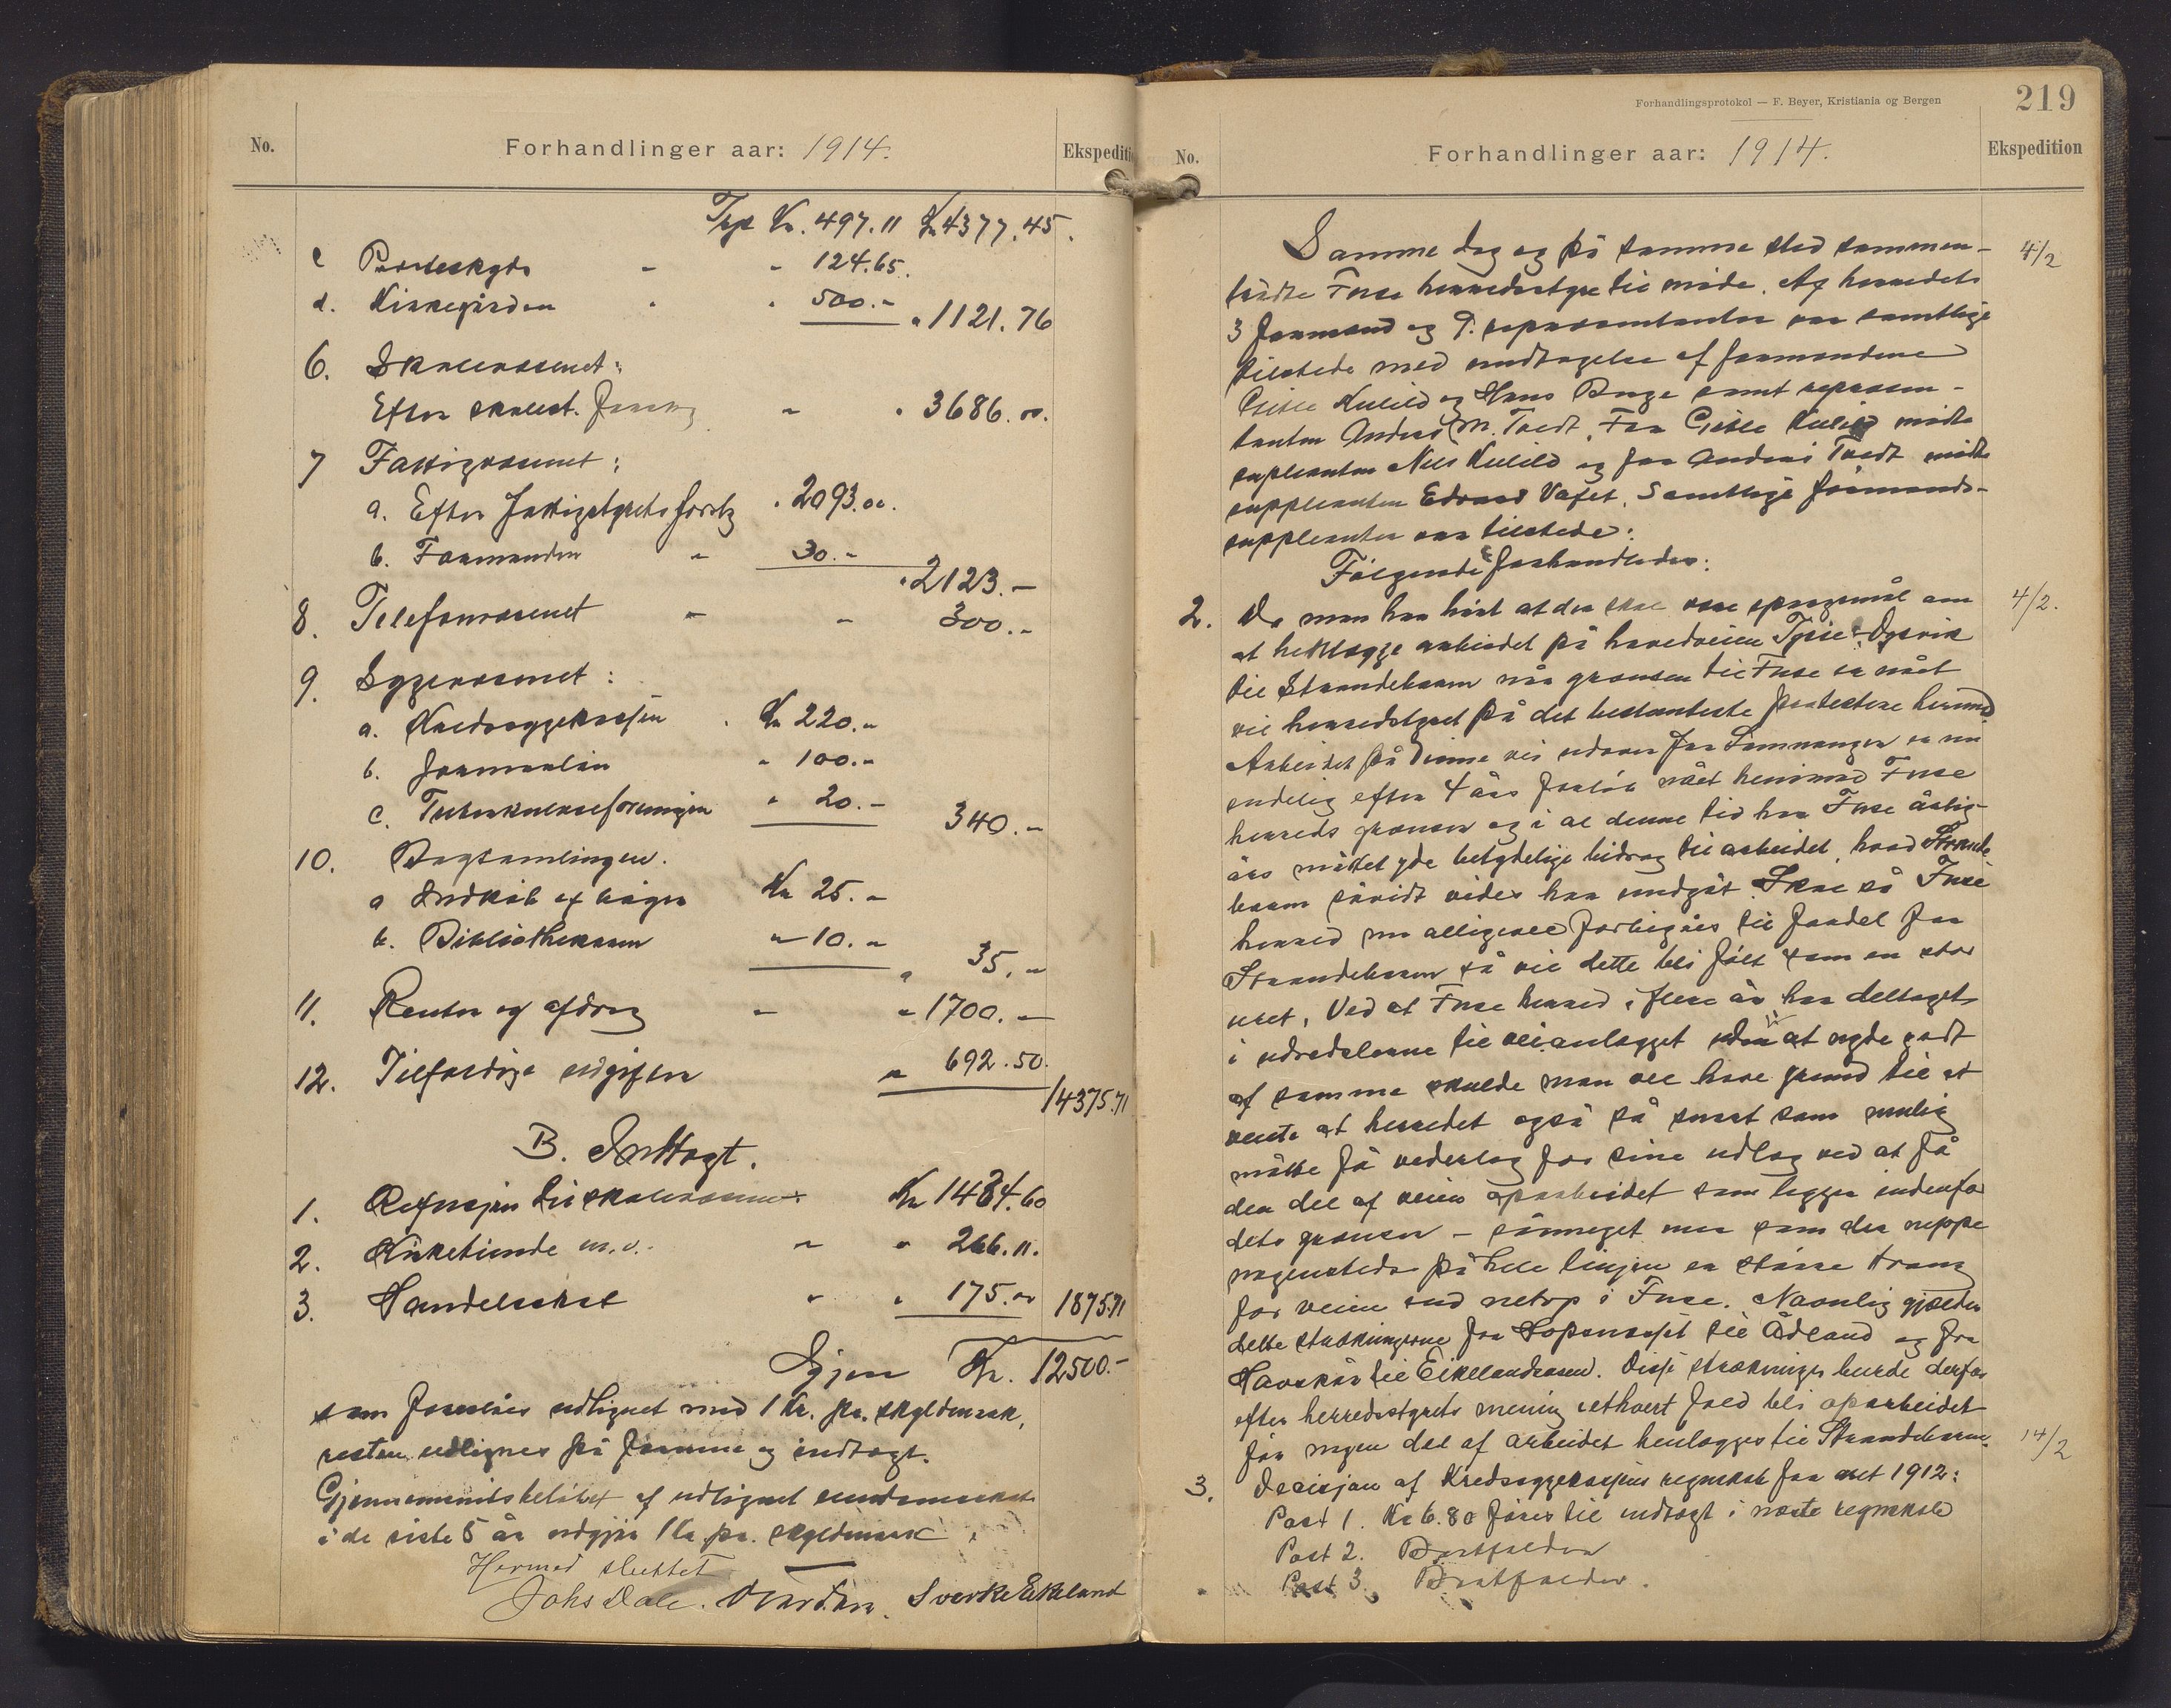 No.
Forhandlinger aar: 1914.
Ekspediti
Trp Kr. 497.11 Kr 4377.45.
c Presteskyds - - 124.65.
d. Kirkegården " " 500.- " 1121.76
6. Skolevæsenet:
Efter skolest. forslag - " 3686.00.
7 Fattigvæsenet:
a. Efter fattigstyrets forslg " 2093.00.
b. Formanden - 30.-
" 2123.-
8. Telefonvæsenet - - 300.-
9. Sygevæsenet:
a. Kredssygekassen . Kr 220.-
b. Jormorløn " 100.-
c. Tuberkuloseforeningen " 20.- 340.-
10. Bogsamlingen.
a Indkøb af bøger Kr 25.-
b. Bibliothekaren - 10.-
" 35.-
11. Renter og afdrag - - 1700.-
12. Tilfældige udgifter " 692.50.
14375.71
B. Indtægt.
1. Refusjon til skolevæsenet Kr 1434.60
2. Kirketiende m.v. - " 266.11.
3. Handelsskat " " 175.00 1875.71
Igjen Kr. 12500.-
som foreslåes udlignet med 1 Kr. pr. skyldmark,
resten udlignes på formue og indtægt.
Gjennemsnitsbeløbet af udlignet
i de siste 5 år udgjør 1 Kr. pr. skyldmark.
Hermed sluttet
Johs Dale. Sverke Eikeland
Forhandlingsprotokol — F. Beyer, Kristiania og Bergen
219
No.
Forhandlinger aar: 1914.
Ekspedition
Samme dag og på samme sted sammen- 4/2
trådte Fuse herredsstyre til møde. Af herredets
3 formænd og 9. repræsentanter var samtlige
tilstede med undtagelse af formændene
Gitle Kulild og Hans Buge samt repræsen-
tanten Andreas M. Tvedt. For Gitle Kulild mødte
supleanten Nils Kulild og for Andreas Tvedt mødte
suppleanten Edvard Vafet. Samtlige formands-
suppleanter var tilstede.
Følgende forhandledes:
2. Da man har hørt at der skal være spørgsmål om 4/2.
at henlægge arbeidet på hovedveien Tysse-Ogsvik
til Strandebarm når grænsen til Fuse er nået
vil herredsstyret på det bestemteste protestere herimod
Arbeidet på denne vei udover fra Samnanger er nu
endelig efter 4 års forløb nået henimod Fuse
herreds grænser og i al denne tid har Fuse årlig-
års måttet yde betydelige bidrag til arbeidet, hvad Strande-
barm såvidt vides har undgåt. Skal så Fuse
herred nu alligevel forbigåes til fordel for
Strandebarm så vil dette bli følt som en stor
uret. Ved at Fuse herred i flere år har deltaget
i udredelserne til veianlægget uden at nyde godt
af samme skulde man vel have grund til at
vente at herredet også så snart som mulig
måtte få vederlag for sine udlæg ved at få
den del af veien oparbeidet som ligger indenfor
dets grænser - såmeget mer som der neppe
nogensteds på hele linjen er større trang
for veien end netop i Fuse. Navnlig gjælder
dette strækningerne fra Hopensæst til Ådland og fra
Havskår til Eikelandsosen. Disse strækninger burde derfor
efter herredsstyrets mening iethvert fald bli oparbeidet
før nogen del af arbeidet henlægges til Strandebarm. 14/2
3. Decisjon af Kredssygekassens regnskab for året 1912:
Post 1. Kr 6.80 føres til indtægt i næste regnskab
Post 2. Bortfalder
Post 3. Bortfalder.